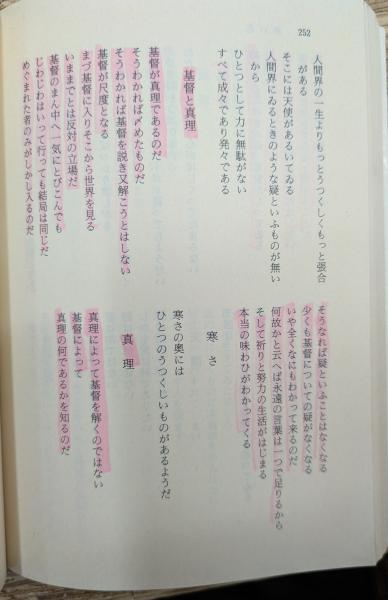 252
人間界の一生よりもっとうつくしくもっと張合
がある
そこには天使があるいてゐる
人間界にゐるときのような疑といふものが無い
から
ひとつとして力に無駄がない
すべて成々であり発々である
基督と真理
基督が真理であるのだ
そうわかれば〆めたものだ
そうわかれば基督を説き又解こうとはしない
基督が尺度となる
まづ基督に入りそこから世界を見る
いままでとは反対の立場だ
基督のまん中へ一気にとびこんでも
じわじわはいって行っても結局は同じだ
めぐまれた者のみがしかし入るのだ
そうなれば疑といふことはなくなる
少くも基督についての疑がなくなる
いや全くなにもわかって来るのだ
何故かと云へば永遠の言葉は一つで足りるから
そして祈りと努力の生活がはじまる
本当の味わひがわかってくる
寒さ
寒さの奥には
ひとつのうつくしいものがあるようだ
真理
真理によって基督を解くのではない
基督によって
真理の何であるかを知るのだ